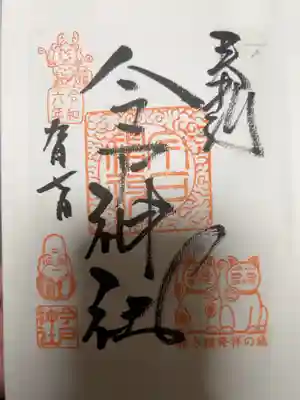 奉拝
今戸神社
今戸神社
令和
六年
今戸
神社
招き猫発祥の地